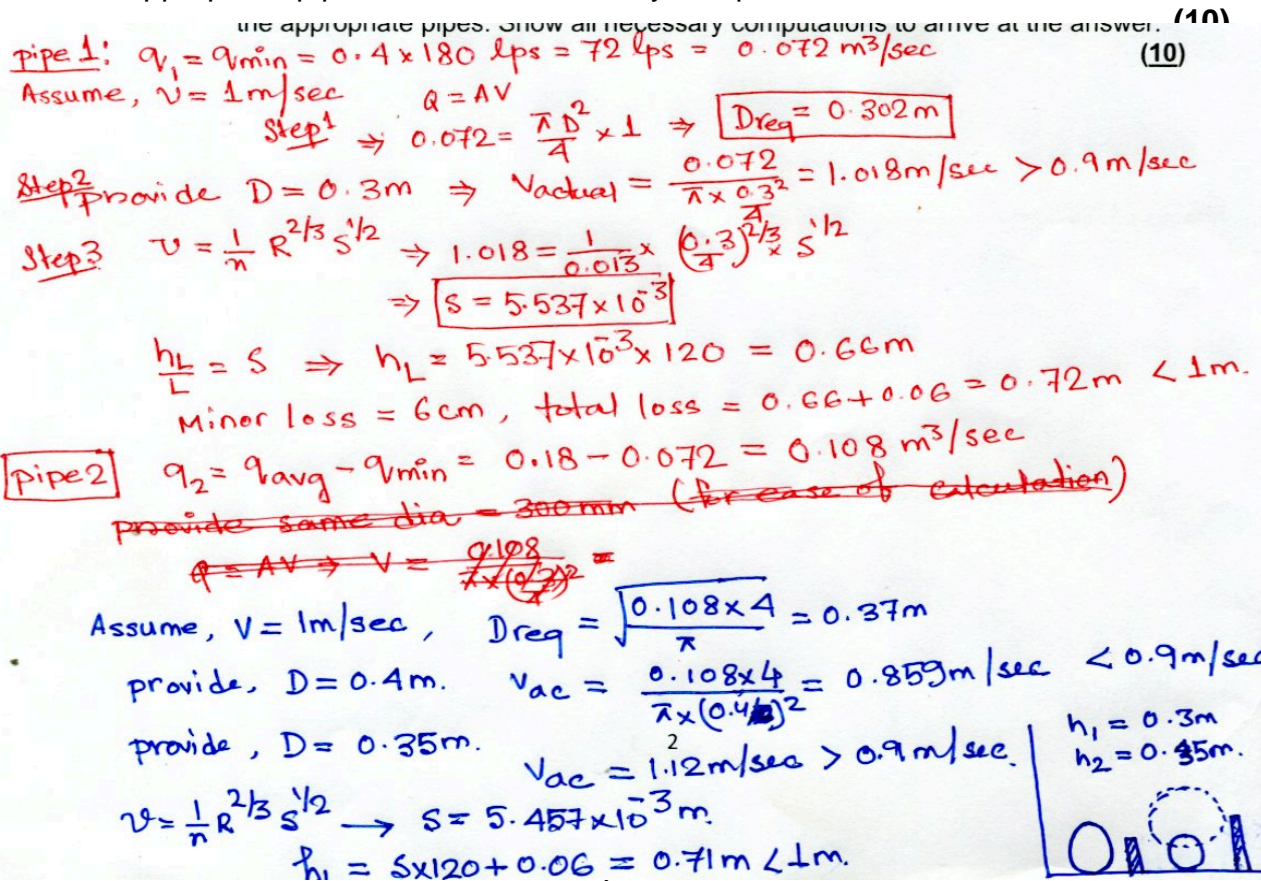 the appropriate pipes. Show all necessary computations to arrive at the answer. (10)
(10)
pipe 1: q₁ = qmin = 0.4 x 180 lps = 72 lps = 0.072 m³/sec
Assume, v = 1m/sec Q = AV
Step1 ⇒ 0.072 = πD²/4 x 1 ⇒ Dreq = 0.302m
Step2 provide D = 0.3m ⇒ Vactual = 0.072/(π x 0.3²/4) = 1.018m/sec > 0.9m/sec
Step3 v = 1/n R^2/3 S^1/2 ⇒ 1.018 = 1/0.013 x (0.3/4)^2/3 x S^1/2
⇒ S = 5.537 x 10⁻³
hL/L = S ⇒ hL = 5.537x10⁻³x 120 = 0.66m
Minor loss = 6cm, total loss = 0.66+0.06 = 0.72m < 1m.
pipe2 q₂ = qavg - qmin = 0.18 - 0.072 = 0.108 m³/sec
provide same dia = 300mm (for ease of calculation)
q = AV ⇒ V = 0.108/πx(0.3)²/4 =
Assume, V = 1m/sec, Dreq = √(0.108x4/π) = 0.37m
provide, D = 0.4m. Vac = 0.108x4/πx(0.4)² = 0.859m/sec < 0.9m/sec
provide, D = 0.35m. Vac = 1.12m/sec > 0.9m/sec.
2
v = 1/n R^2/3 S^1/2 → S = 5.457x10⁻³m.
hL = Sx120 + 0.06 = 0.71m < 1m.
h₁ = 0.3m
h₂ = 0.45m.